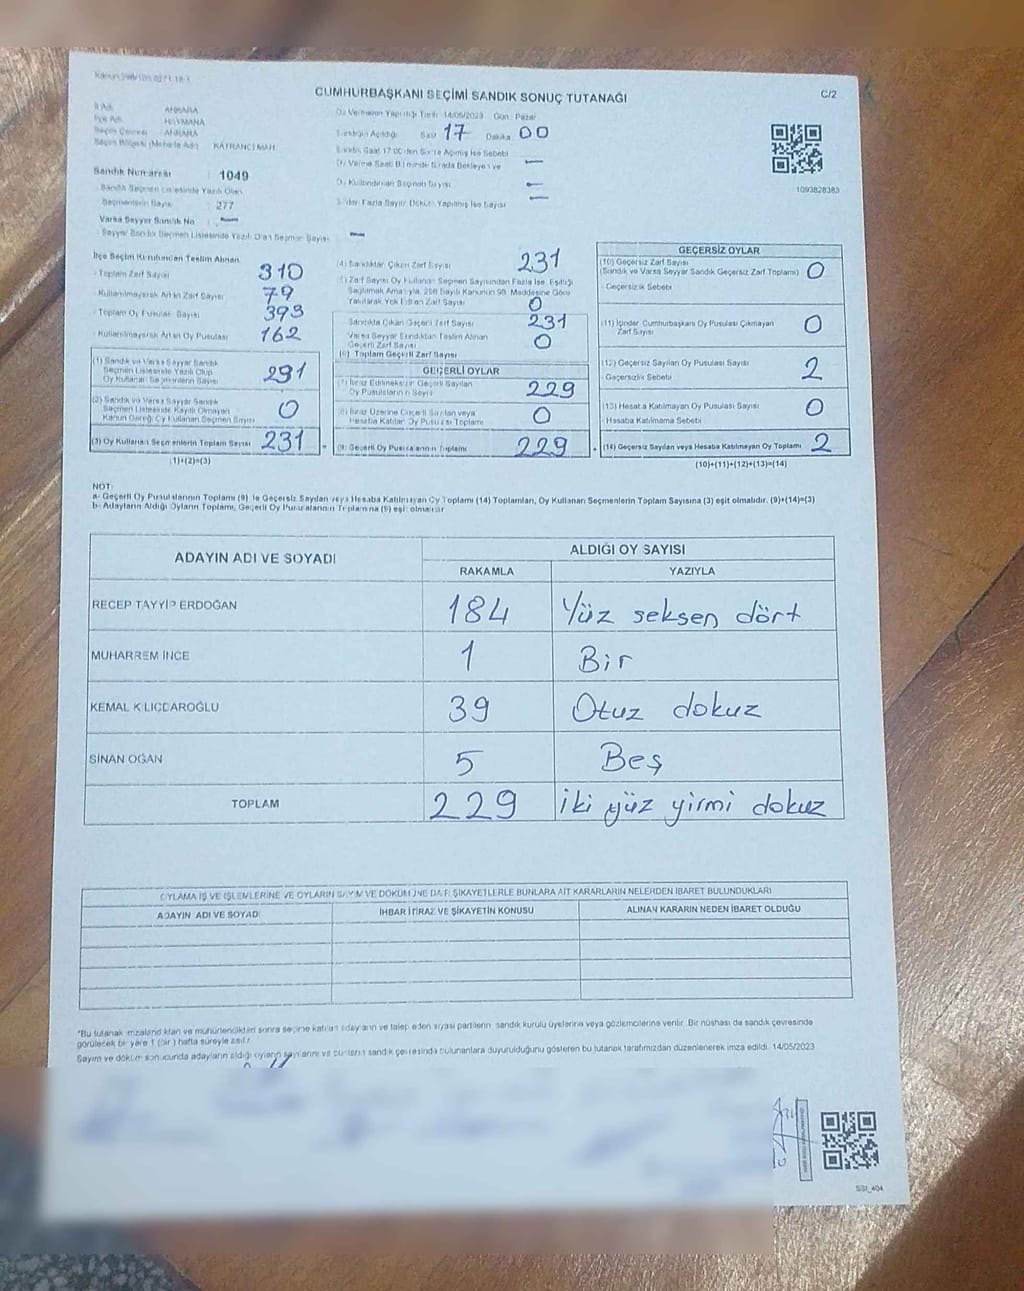 CUMHURBAŞKANI SEÇİMİ SANDIK SONUÇ TUTANAĞI
C/2
İl Adı ANKARA
İlçe Adı HAYMANA
Seçim Çevresi ANKARA
KATRANCI MAH.
Oy Vermenin Yapıldığı Tarih 14/05/2023 Gün: Pazar
Sandığın Açıldığı Saat 17 Dakika 00
1093828383
Sandık Numarası 1049
Sandık Seçmen Listesinde Yazılı Olan
Seçmenlerin Sayısı 277
Varsa Seyyar Sandık No
Seyyar Sandık Seçmen Listesinde Yazılı Olan Seçmen Sayısı
İlçe Seçim Kurulundan Teslim Alınan
Toplam Zarf Sayısı 310
Kullanılmayarak Artan Zarf Sayısı 79
Toplam Oy Pusulası Sayısı 393
Kullanılmayarak Artan Oy Pusulası 162
(1) Sandık ve Varsa Seyyar Sandık
Seçmen Listesinde Yazılı Olup
Oy Kullanan Seçmenlerin Sayısı 231
(2) Sandık ve Varsa Seyyar Sandık
Seçmen Listesinde Kayıtlı Olmayan
Kanun Gereği Oy Kullanan Seçmen Sayısı 0
(3) Oy Kullanan Seçmenlerin Toplam Sayısı 231
(1)+(2)=(3)
(4) Sandıktan Çıkan Zarf Sayısı 231
Yakılarak Yok Edilen Zarf Sayısı 0
Sandıkta Çıkan Geçerli Zarf Sayısı 231
Varsa Seyyar Sandıktan Teslim Alınan
Geçerli Zarf Sayısı 0
(6) Toplam Geçerli Zarf Sayısı
GEÇERLİ OYLAR
(7) İtiraz Edilmeksizin Geçerli Sayılan
Oy Pusulalarının Sayısı 229
(8) İtiraz Üzerine Geçerli Sayılan veya
Hesaba Katılan Oy Pusulası Toplamı 0
(9) Geçerli Oy Pusulalarının Toplamı 229
GEÇERSİZ OYLAR
(10) Geçersiz Zarf Sayısı 0
(Sandık ve Varsa Seyyar Sandık Geçersiz Zarf Toplamı)
Geçersizlik Sebebi
(11) İçinden Cumhurbaşkanı Oy Pusulası Çıkmayan
Zarf Sayısı 0
(12) Geçersiz Sayılan Oy Pusulası Sayısı 2
Geçersizlik Sebebi
(13) Hesaba Katılmayan Oy Pusulası Sayısı 0
Hesaba Katılmama Sebebi
(14) Geçersiz Sayılan veya Hesaba Katılmayan Oy Toplamı 2
(10)+(11)+(12)+(13)=(14)
NOT:
a- Geçerli Oy Pusulalarının Toplamı (9) ile Geçersiz Sayılan veya Hesaba Katılmayan Oy Toplamı (14) Toplamları, Oy Kullanan Seçmenlerin Toplam Sayısına (3) eşit olmalıdır. (9)+(14)=(3)
b- Adayların Aldığı Oyların Toplamı, Geçerli Oy Pusulalarının Toplamına (9) eşit olmalıdır
ADAYIN ADI VE SOYADI
ALDIĞI OY SAYISI
RAKAMLA YAZIYLA
RECEP TAYYİP ERDOĞAN 184 Yüz seksen dört
MUHARREM İNCE 1 Bir
KEMAL KILIÇDAROĞLU 39 Otuz dokuz
SİNAN OĞAN 5 Beş
TOPLAM 229 iki yüz yirmi dokuz
OYLAMA İŞ VE İŞLEMLERİNE VE OYLARIN SAYIM VE DÖKÜMÜNE DAİR ŞİKAYETLERLE BUNLARA AİT KARARLARIN NELERDEN İBARET BULUNDUKLARI
ADAYIN ADI VE SOYADI İHBAR İTİRAZ VE ŞİKAYETİN KONUSU ALINAN KARARIN NEDEN İBARET OLDUĞU
*Bu tutanak imzalandıktan ve mühürlendikten sonra seçime katılan adayların ve talep eden siyasi partilerin sandık kurulu üyelerine veya gözlemcilerine verilir. Bir nüshası da sandık çevresinde
görülecek bir yere 1 (bir) hafta süreyle asılır.
Sayım ve döküm sonucunda adayların aldığı oyların sayılarını ve bunların sandık çevresinde bulunanlara duyurulduğunu gösteren bu tutanak tarafımızdan düzenlenerek imza edildi. 14/05/2023
SS1_404